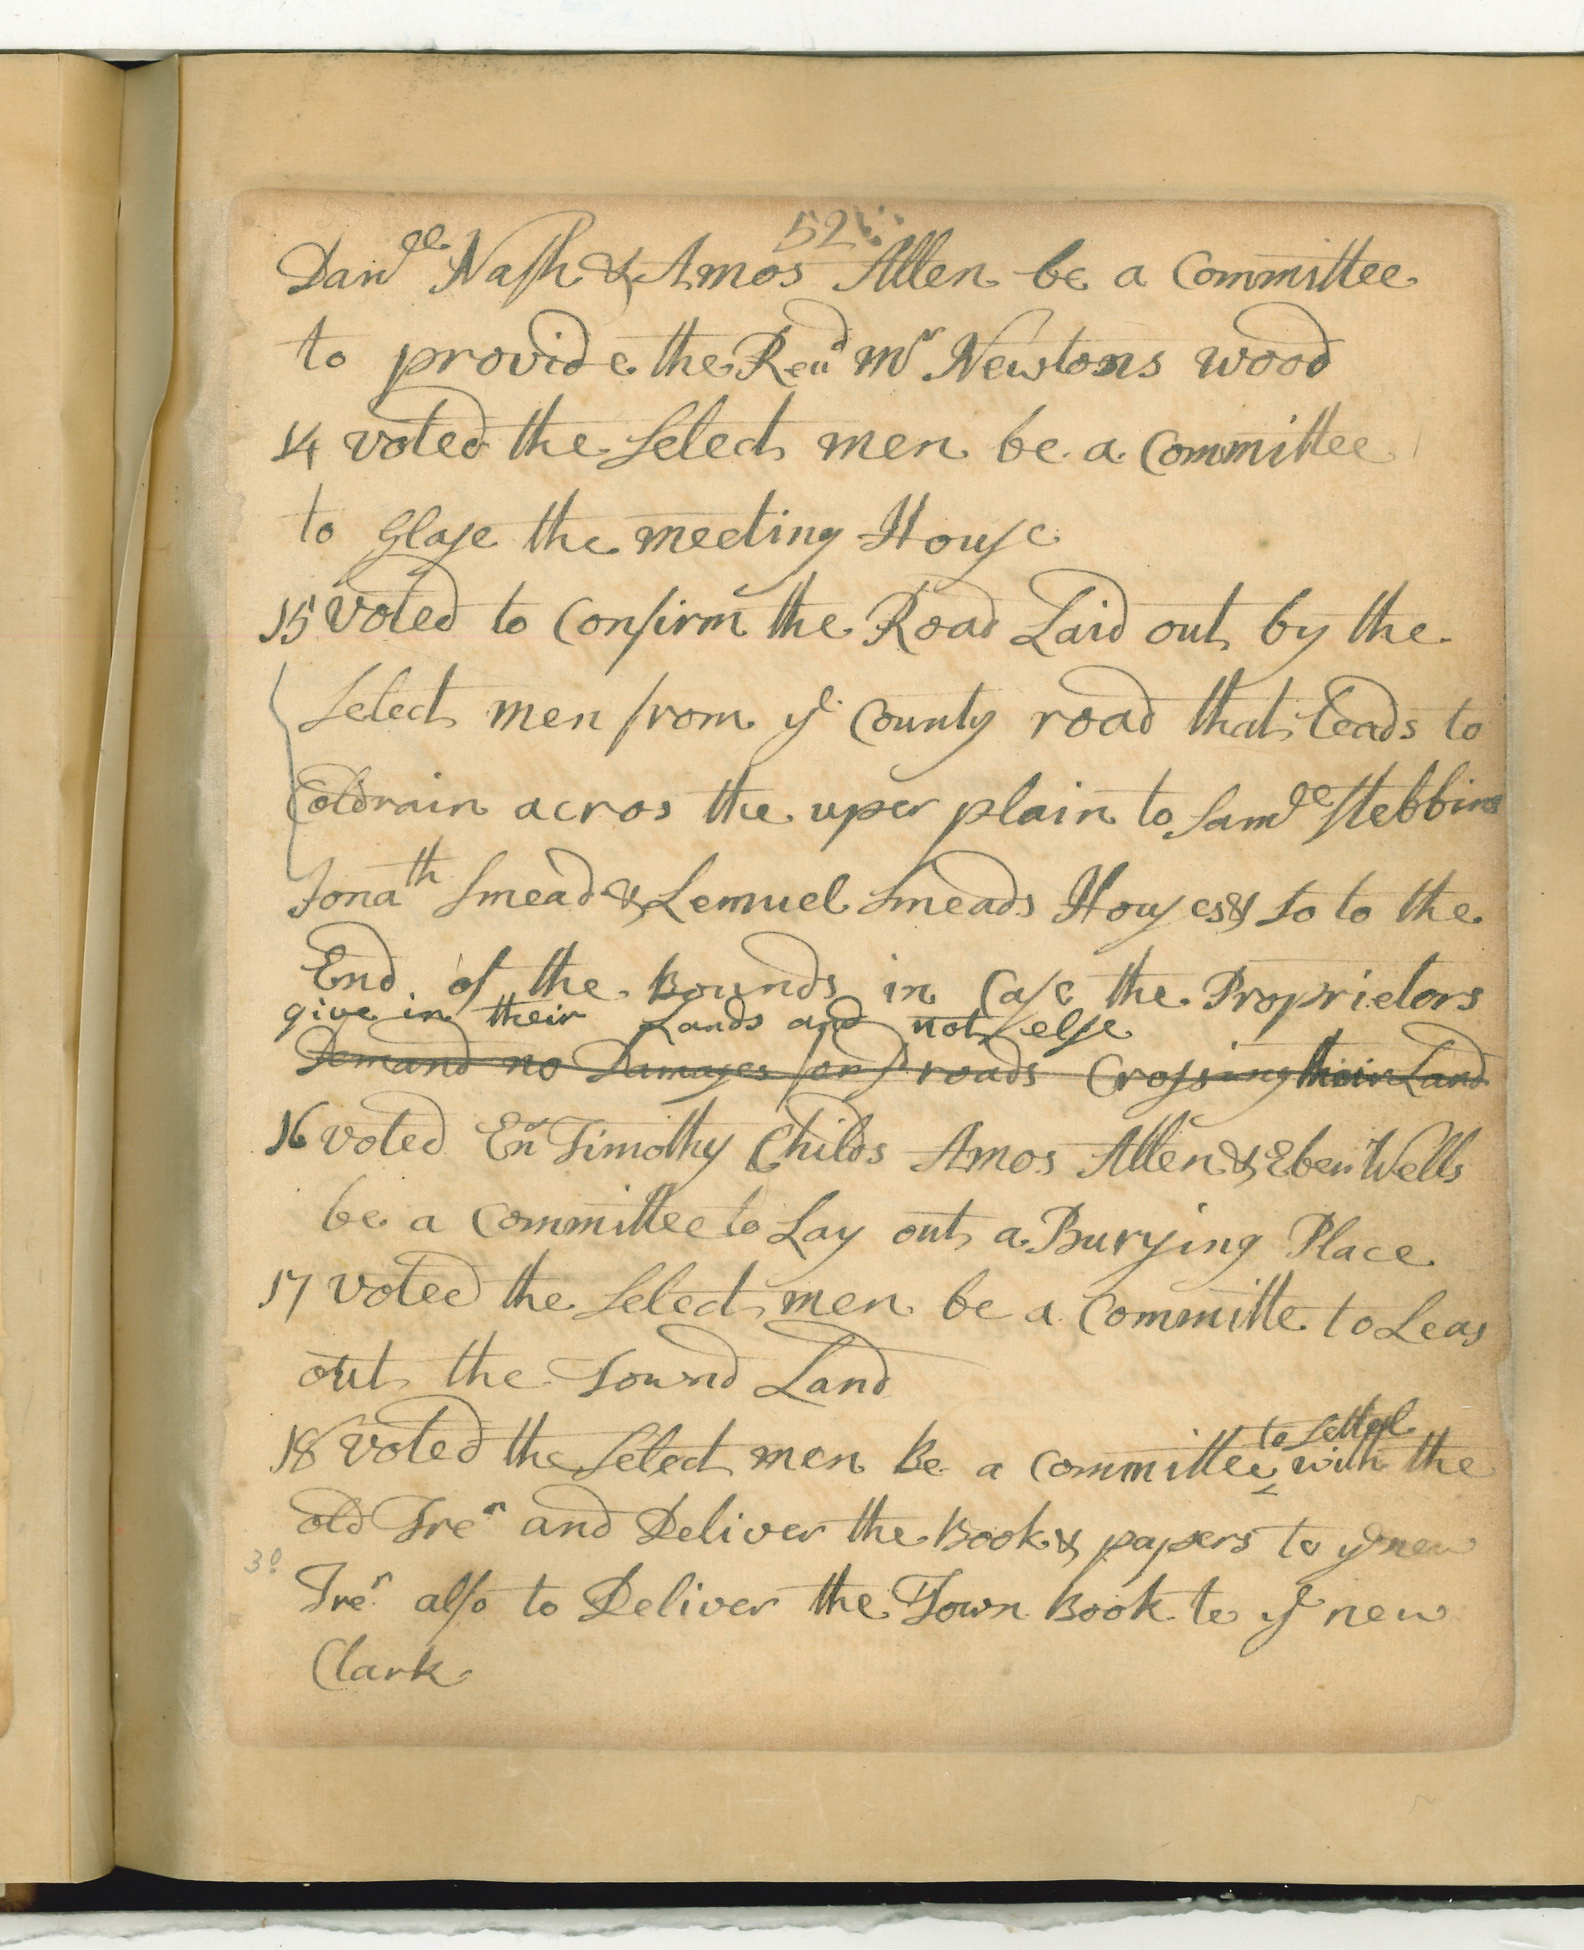 52
Dan^ll Nash & Amos Allen be a Committee
to provide the Reu^d M^r Newtons wood
14 voted the Select men be a Committee
to Glase the meeting House
15 voted to Confirm the Road Laid out by the
Select men from y^e County road that Leads to
Coldrain acros the uper plain to Sam^ll Stebbins
Jona^th Smead & Lemuel Smeads Houses & so to the
End of the Bounds in Case the Proprietors
give in their Lands and not else
Demand no Damages for y^e roads Crossing their Land
16 voted En^s Timothy Childs Amos Allen & Eben Wells
be a Committee to Lay out a Burying Place
17 voted the Select men be a Committe to Leas
out the Townd Land
to Settel
18 voted the Select men Be a Committee with the
old Tre^r and Deliver the Book & papers to y^e new
30
Tre^r also to Deliver the Town Book to y^e new
Clark